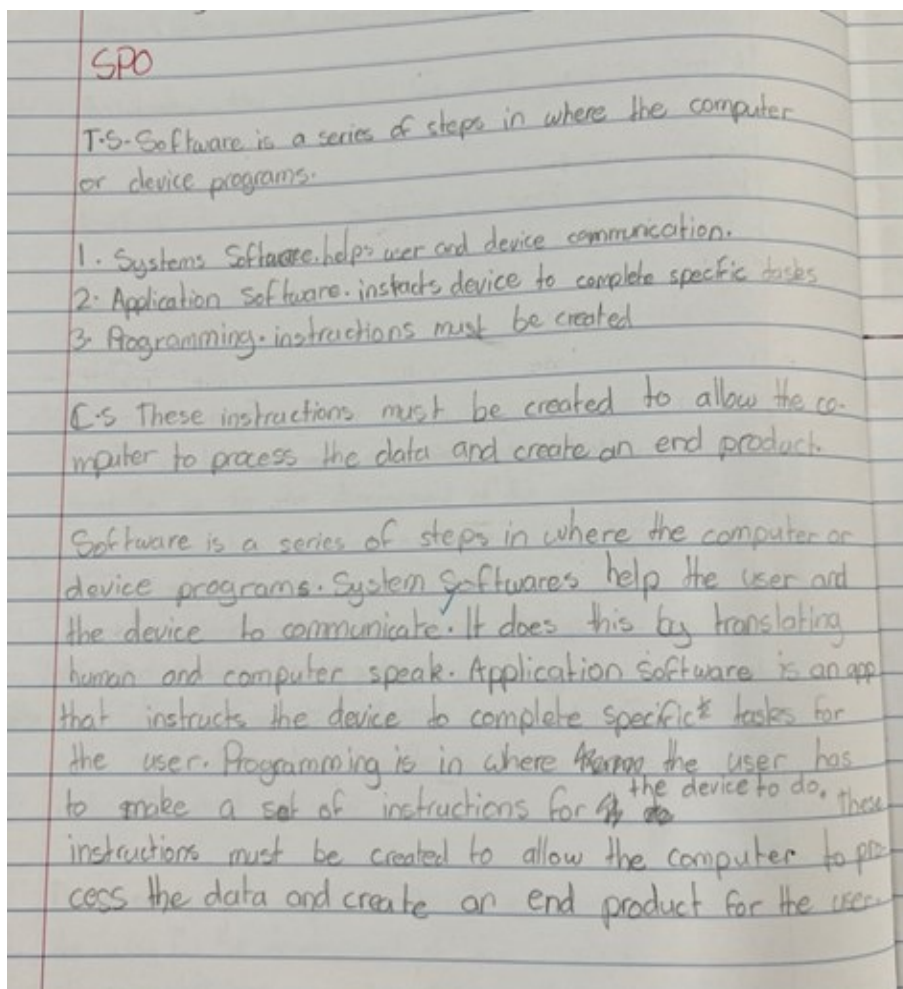 SPO
T.S. Software is a series of steps in where the computer
or device programs.
1. Systems Software. helps user and device communication.
2. Application Software. instacts device to complete specific tasks
3. Programming. instructions must be created
C.S These instructions must be created to allow the co-
mputer to process the data and create an end product.
Software is a series of steps in where the computer or
device programs. System Softwares help the user and
the device to communicate. It does this by translating
human and computer speak. Application Software is an app
that instructs the device to complete specific tasks for
the user. Programming is in where the user has
to make a set of instructions for the device to do. these
instructions must be created to allow the computer to pro
cess the data and create an end product for the user.